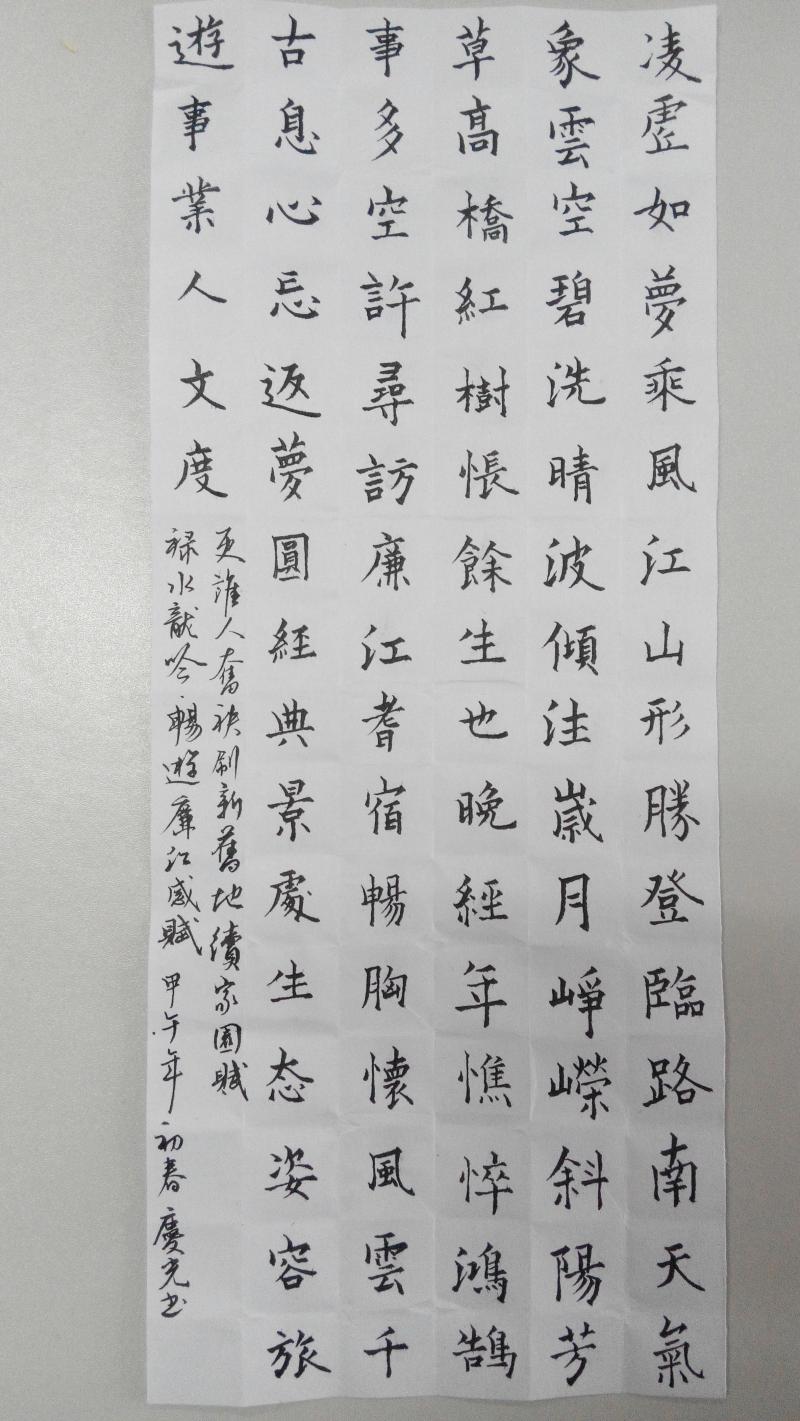 凌虛如夢乘風江山形勝登臨路南天氣
象雲空碧洗晴波傾注歲月崢嶸斜陽芳
草高橋紅樹悵餘生也晚經年憔悴鴻鵠
事多空許尋訪廉江耆宿暢胸懷風雲千
古息心忘返夢圓經典景處生态姿容旅
遊事業人文度
更誰人奮袂刷新舊地續家園賦
禄水龍吟暢遊廉江感賦 甲午年初春慶光书